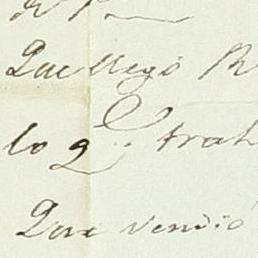 Que llegó R
lo q.e trah
Que vendió